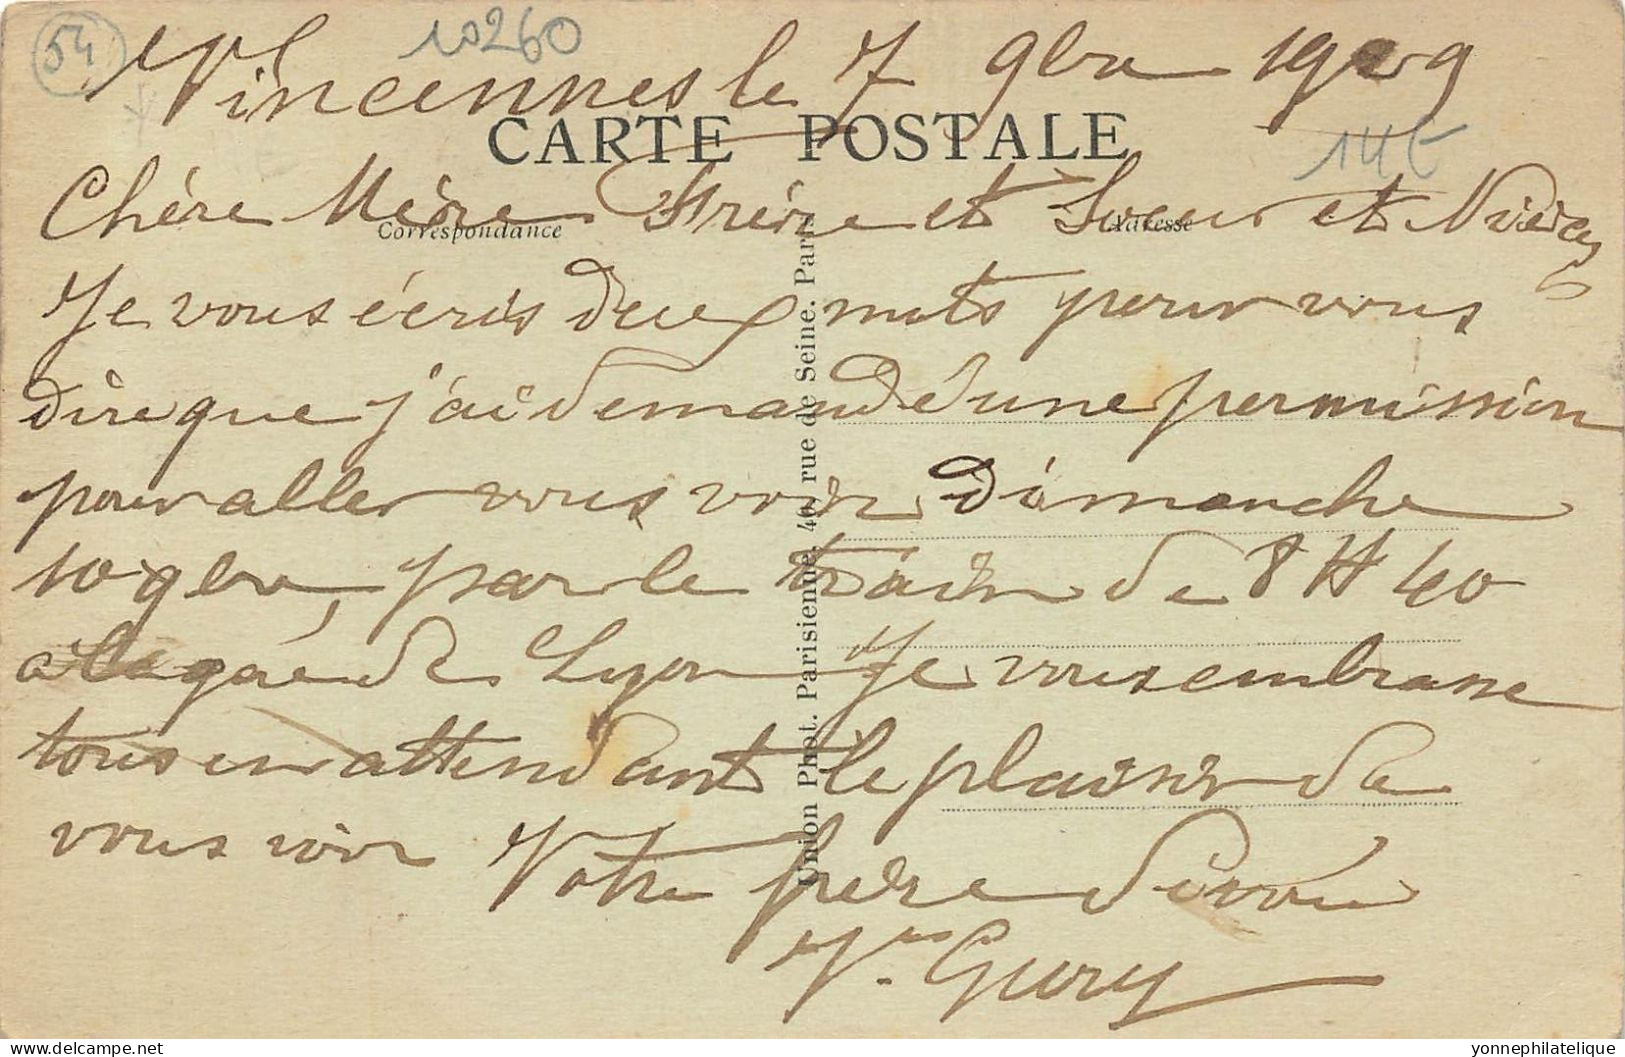 54
10260
Vincennes le 7 9bre 1909
14€
CARTE POSTALE
Correspondance
Adresse
Chère Mère Frère et Soeur et Nièces
Je vous écris deux mots pour vous
dire que j'ai demandé une permission
pour aller vous voir Dimanche
10 9bre, par le train de 8 H 40
a la gare de Lyon Je vous embrasse
tous en attendant le plaisir de
vous voir Votre frère dévoué
Gury
Union Phot. Parisienne. 40, rue de Seine. Paris
delcampe.net
yonnephilatelique